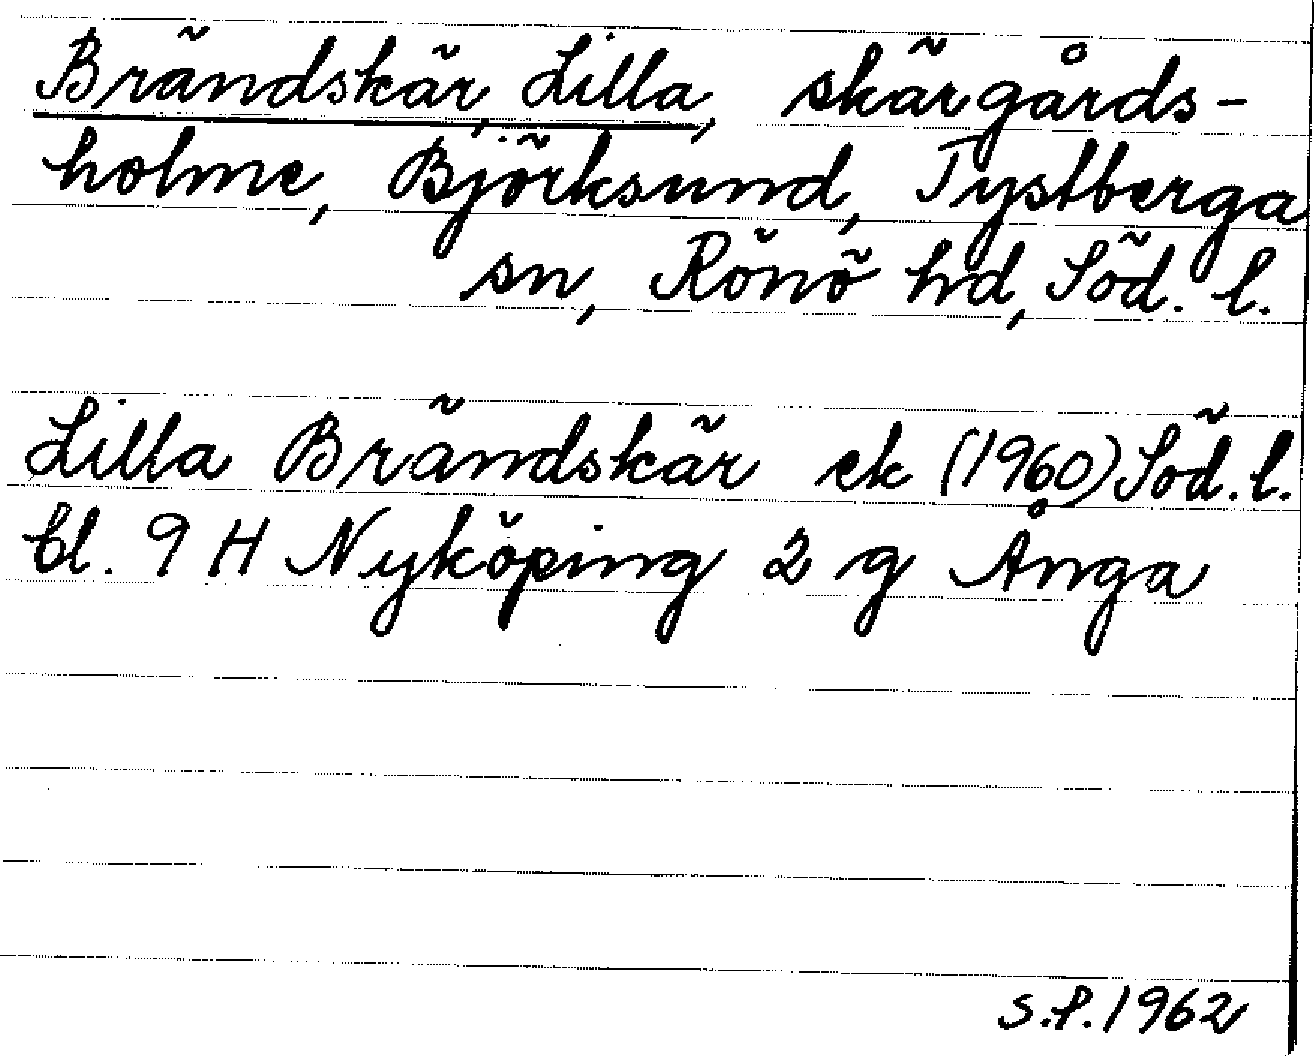 Brändskär, Lilla, skärgårds-
holme, Björksund, Tystberga
sn, Rönö hd, Söd. l.
Lilla Brändskär ek (1960) Söd. l.
bl. 9 H Nyköping 2 g Ånga
S.P. 1962